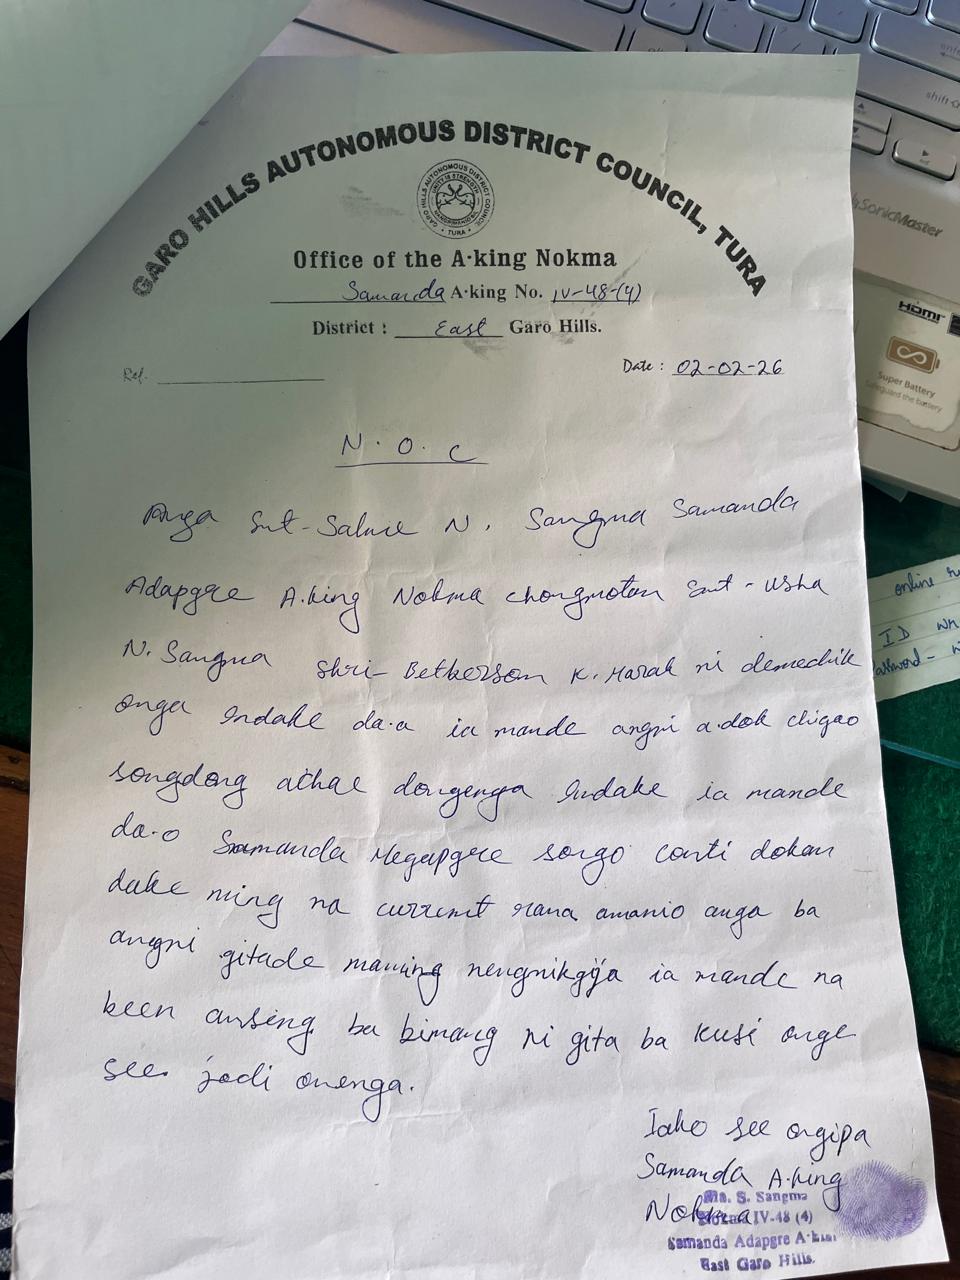 GARO HILLS AUTONOMOUS DISTRICT COUNCIL, TURA
GARO HILLS AUTONOMOUS DISTRICT COUNCIL
UNITY IS STRENGTH
TURA
Office of the A·king Nokma
Samanda A·king No. IV-48-(4)
District : East Garo Hills.
Ref.
Date : 02-02-26
N. O. C
Anga Smt-Salme N. Sangma Samanda
Adapgre A.king Nokma chongmotan Smt-usha
N. Sangma Shri-Betherson K. Marak ni demechik
onga Indake da.a ia mande angni a.dok chigao
songdong achae dongenga Indake ia mande
da.o Samanda Megapgre songo conti dokan
dake ming na current rana amanio anga ba
angni gitade maming nengnikgija ia mande na
been ansing ba bimang ni gita ba kusi onge
see jodi onenga.
Iako see ongipa
Samanda A.king
Nokma
S. Sangma
Nokma IV-48 (4)
Samanda Adapgre A·king
East Garo Hills.
shift
SonicMaster
HDMI
Super Battery
Safeguard the battery
online
ID
Password -